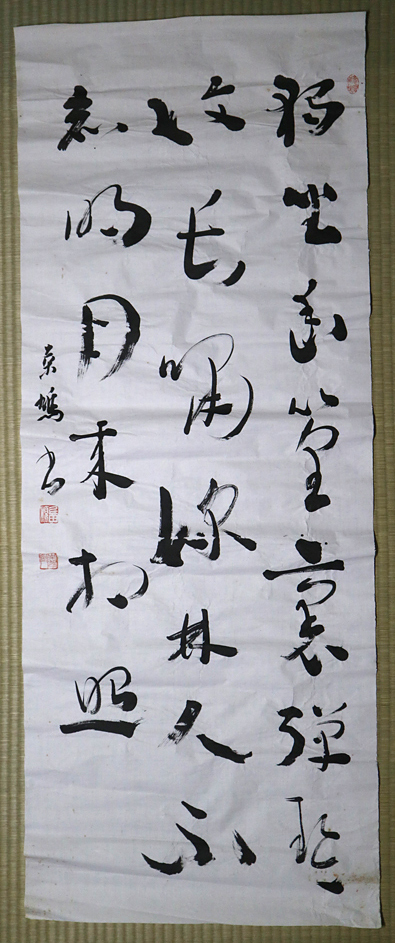 獨坐幽篁裏彈琴
復長嘯深林人不
知明月来相照
書